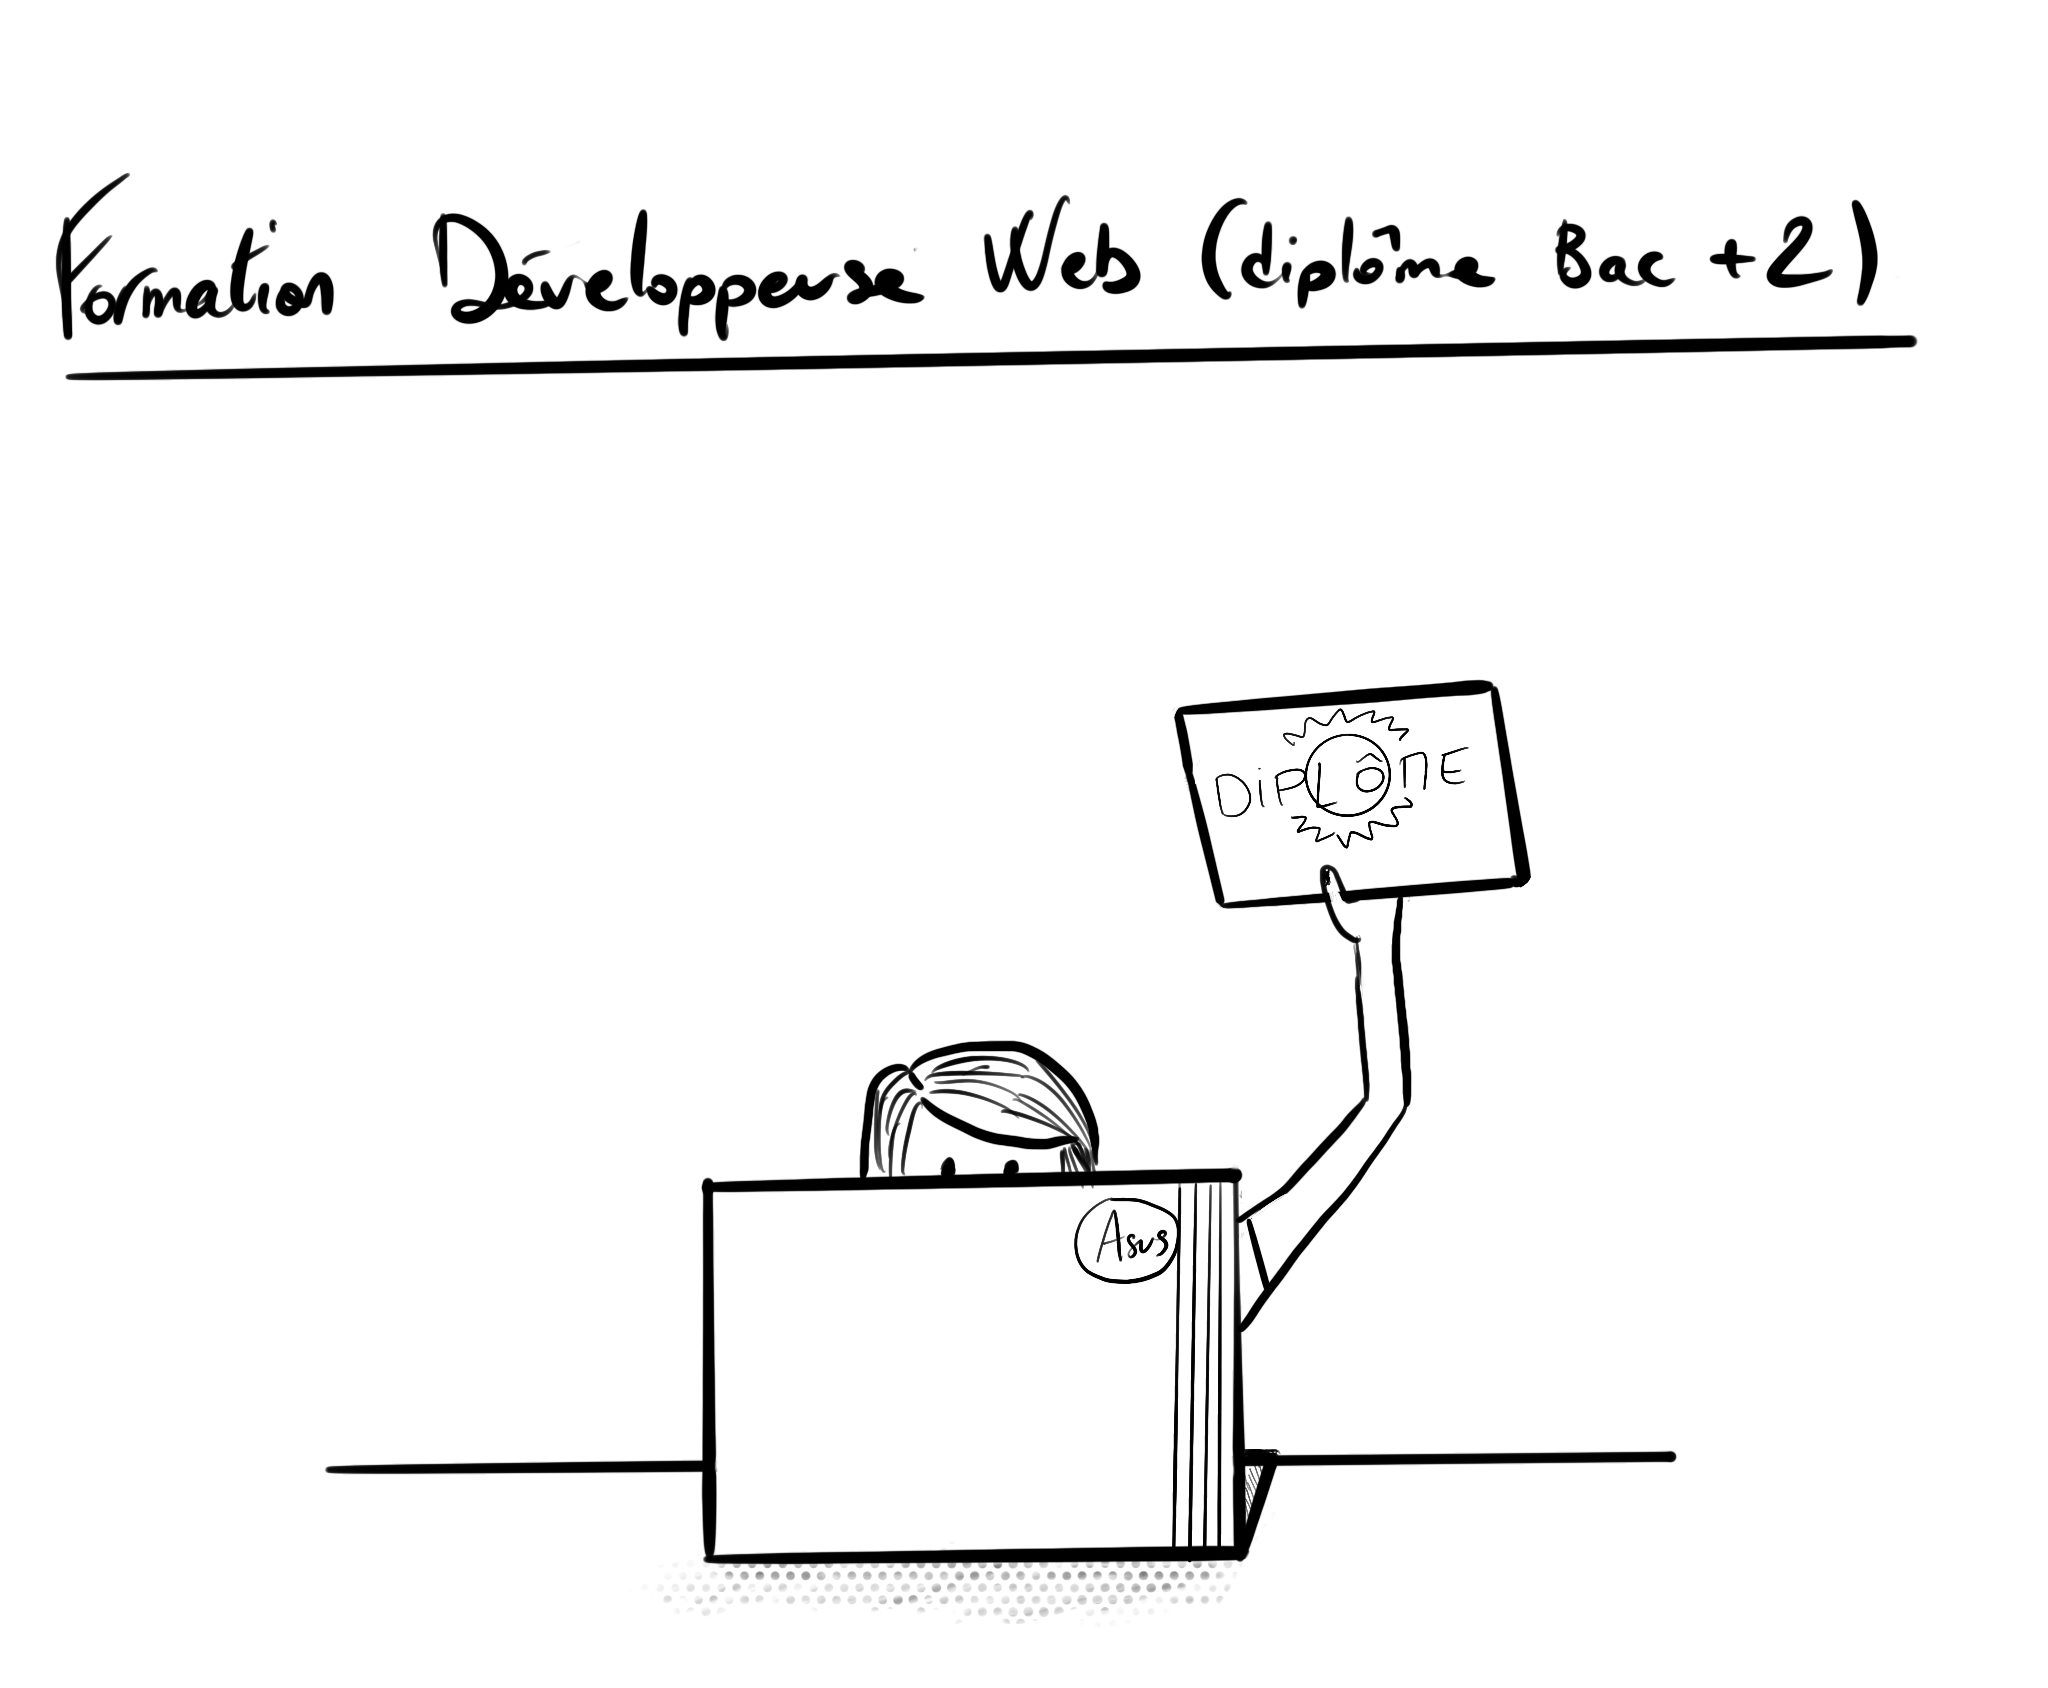 Formation Développeuse Web (diplôme Bac +2)
DiPLÔME
Asus